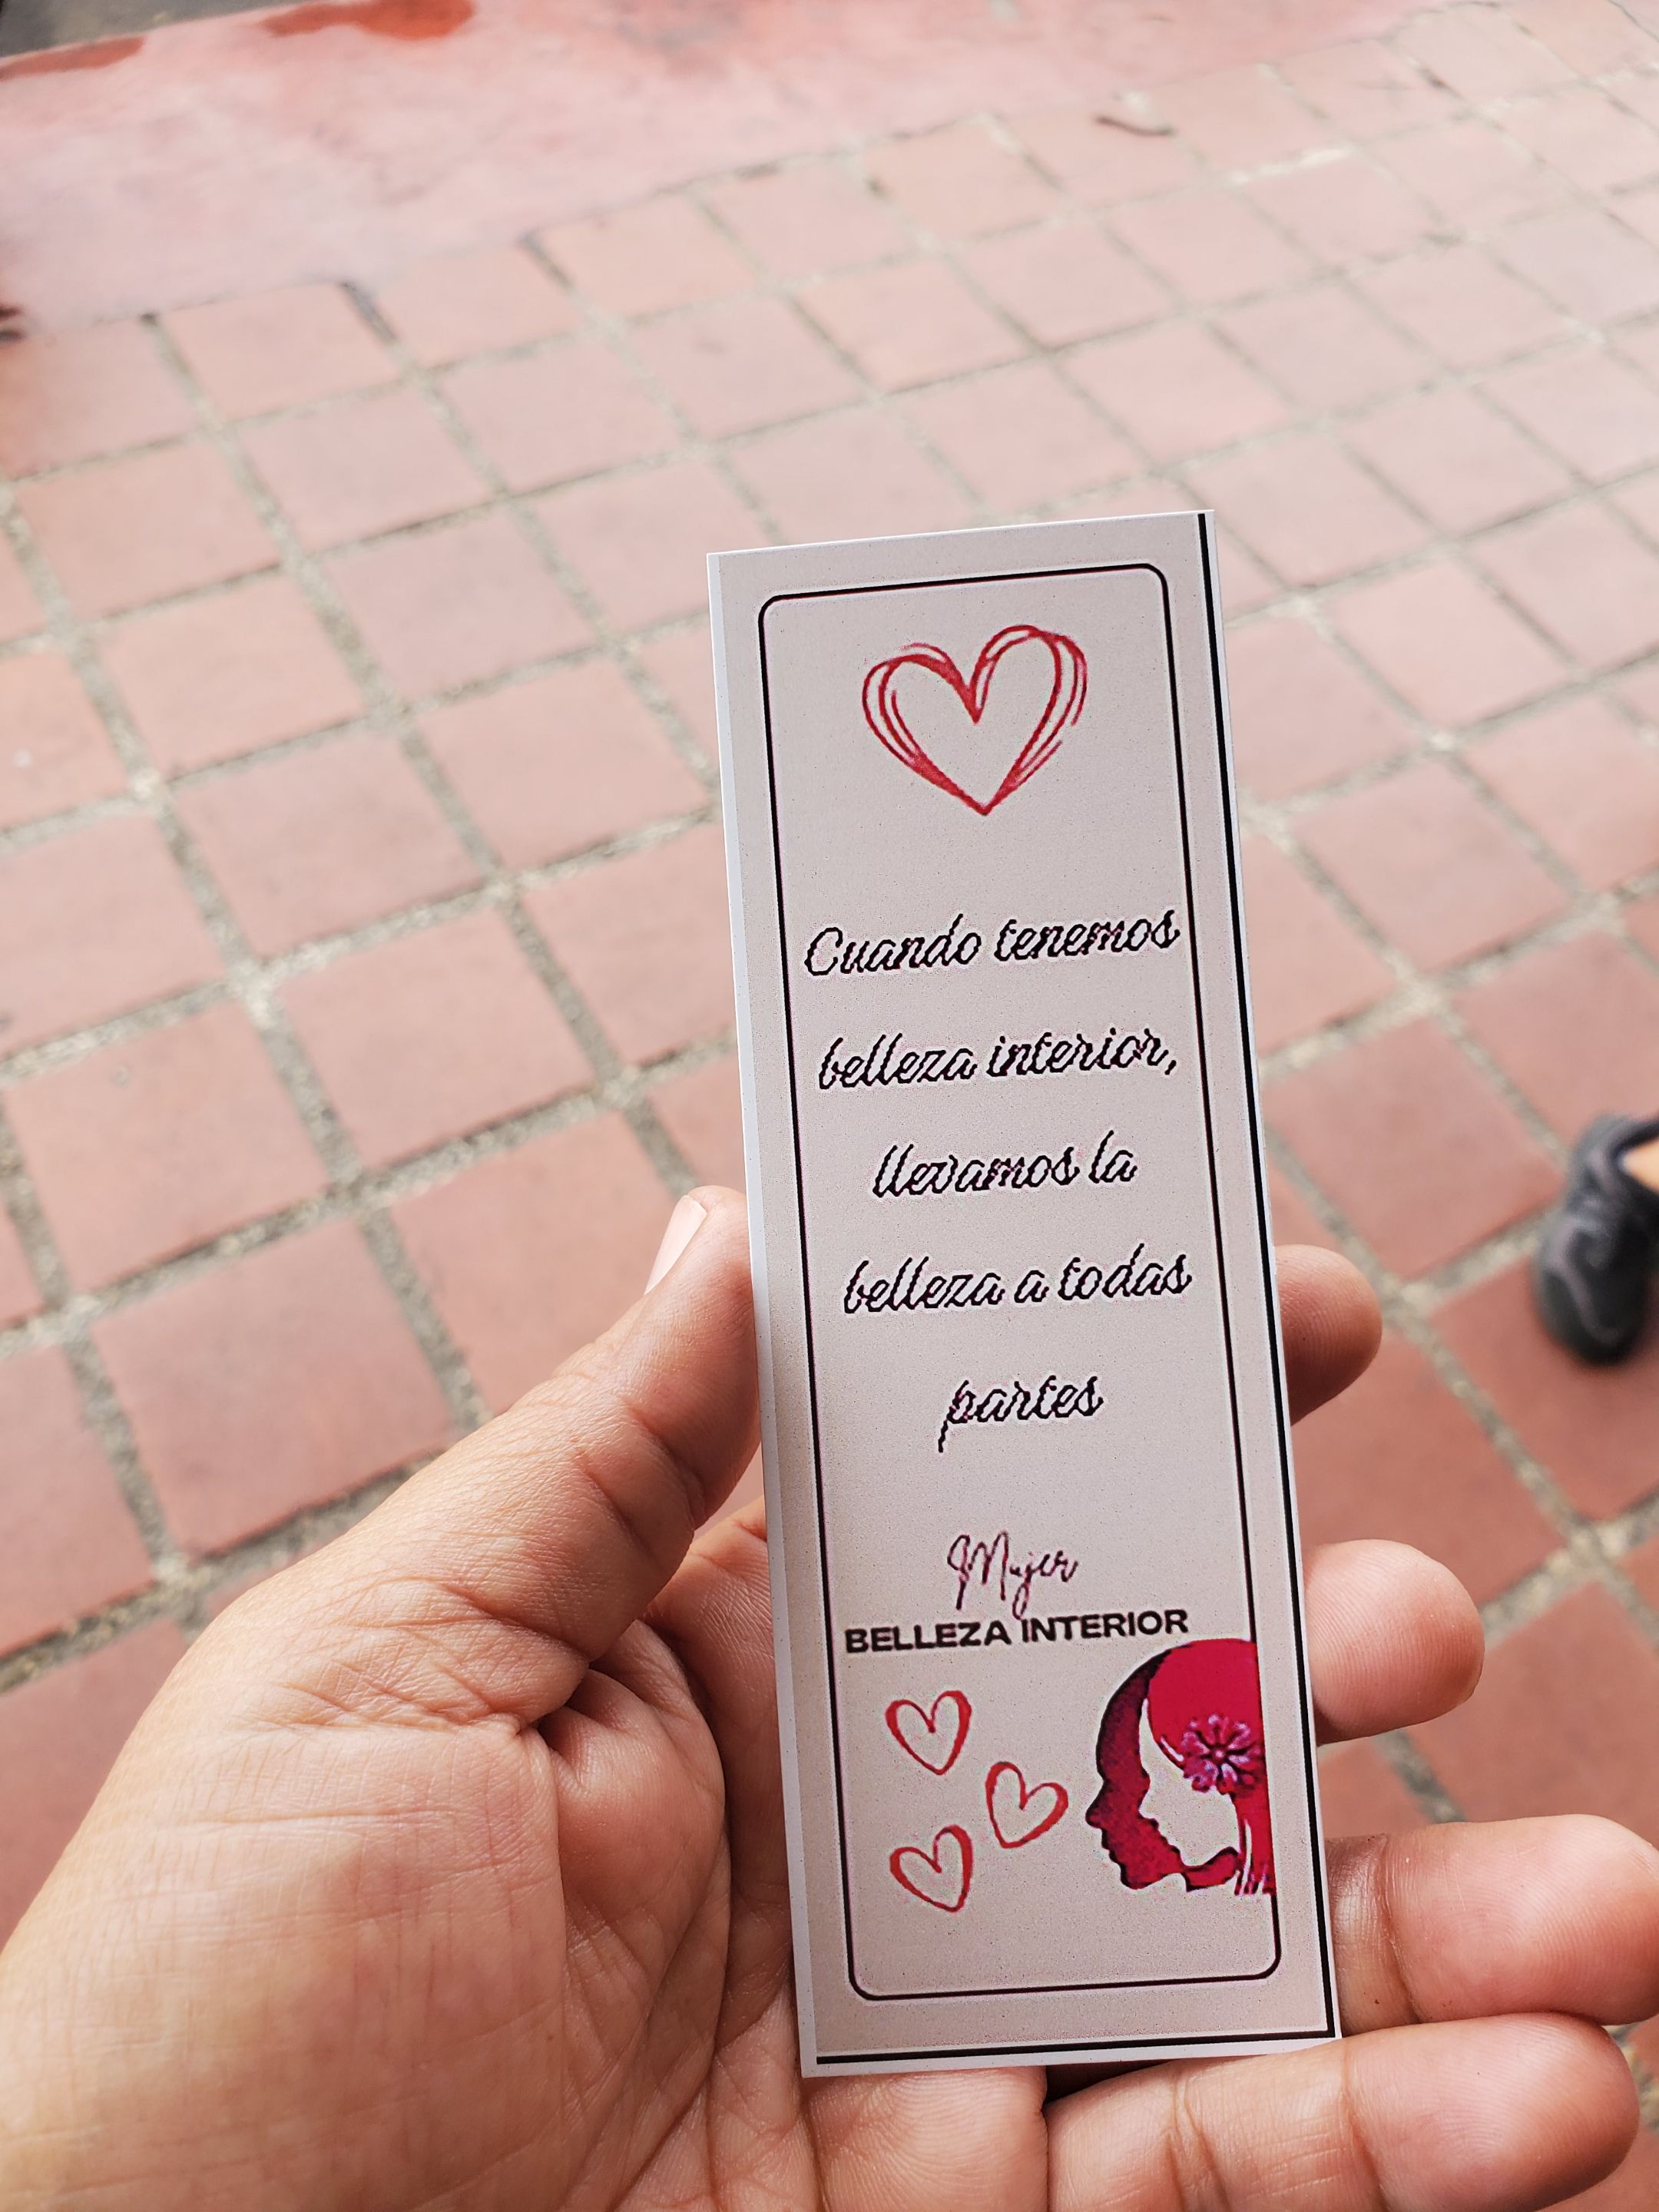 Cuando tenemos
belleza interior,
llevamos la
belleza a todas
partes
Mujer
BELLEZA INTERIOR